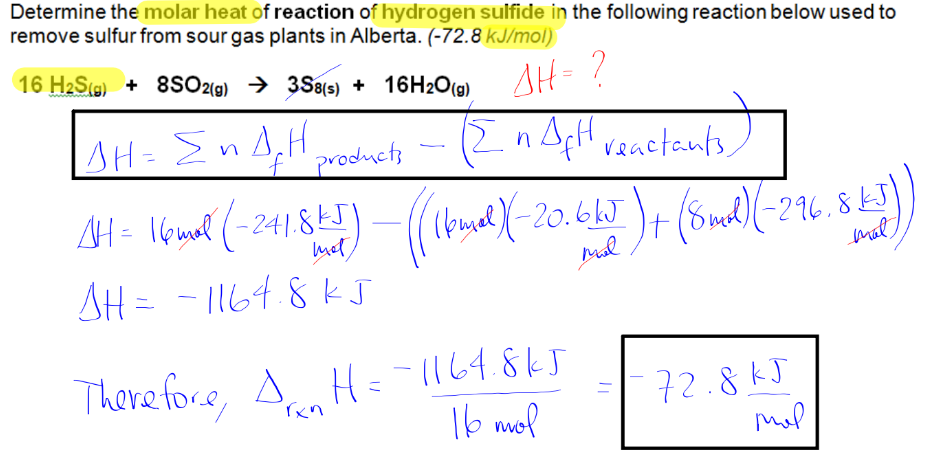 Determine the molar heat of reaction of hydrogen sulfide in the following reaction below used to
remove sulfur from sour gas plants in Alberta. (-72.8 kJ/mol)
16 H₂S(g) + 8SO₂(g) → 3S₈(s) + 16H₂O(g) ΔH = ?
ΔH = Σ n Δ_f H products - (Σ n Δ_f H reactants)
ΔH = 16 mol (-241.8 kJ/mol) - ((16 mol)(-20.6 kJ/mol) + (8 mol)(-296.8 kJ/mol))
ΔH = -1164.8 kJ
Therefore, Δ_rxn H = -1164.8 kJ / 16 mol = -72.8 kJ/mol